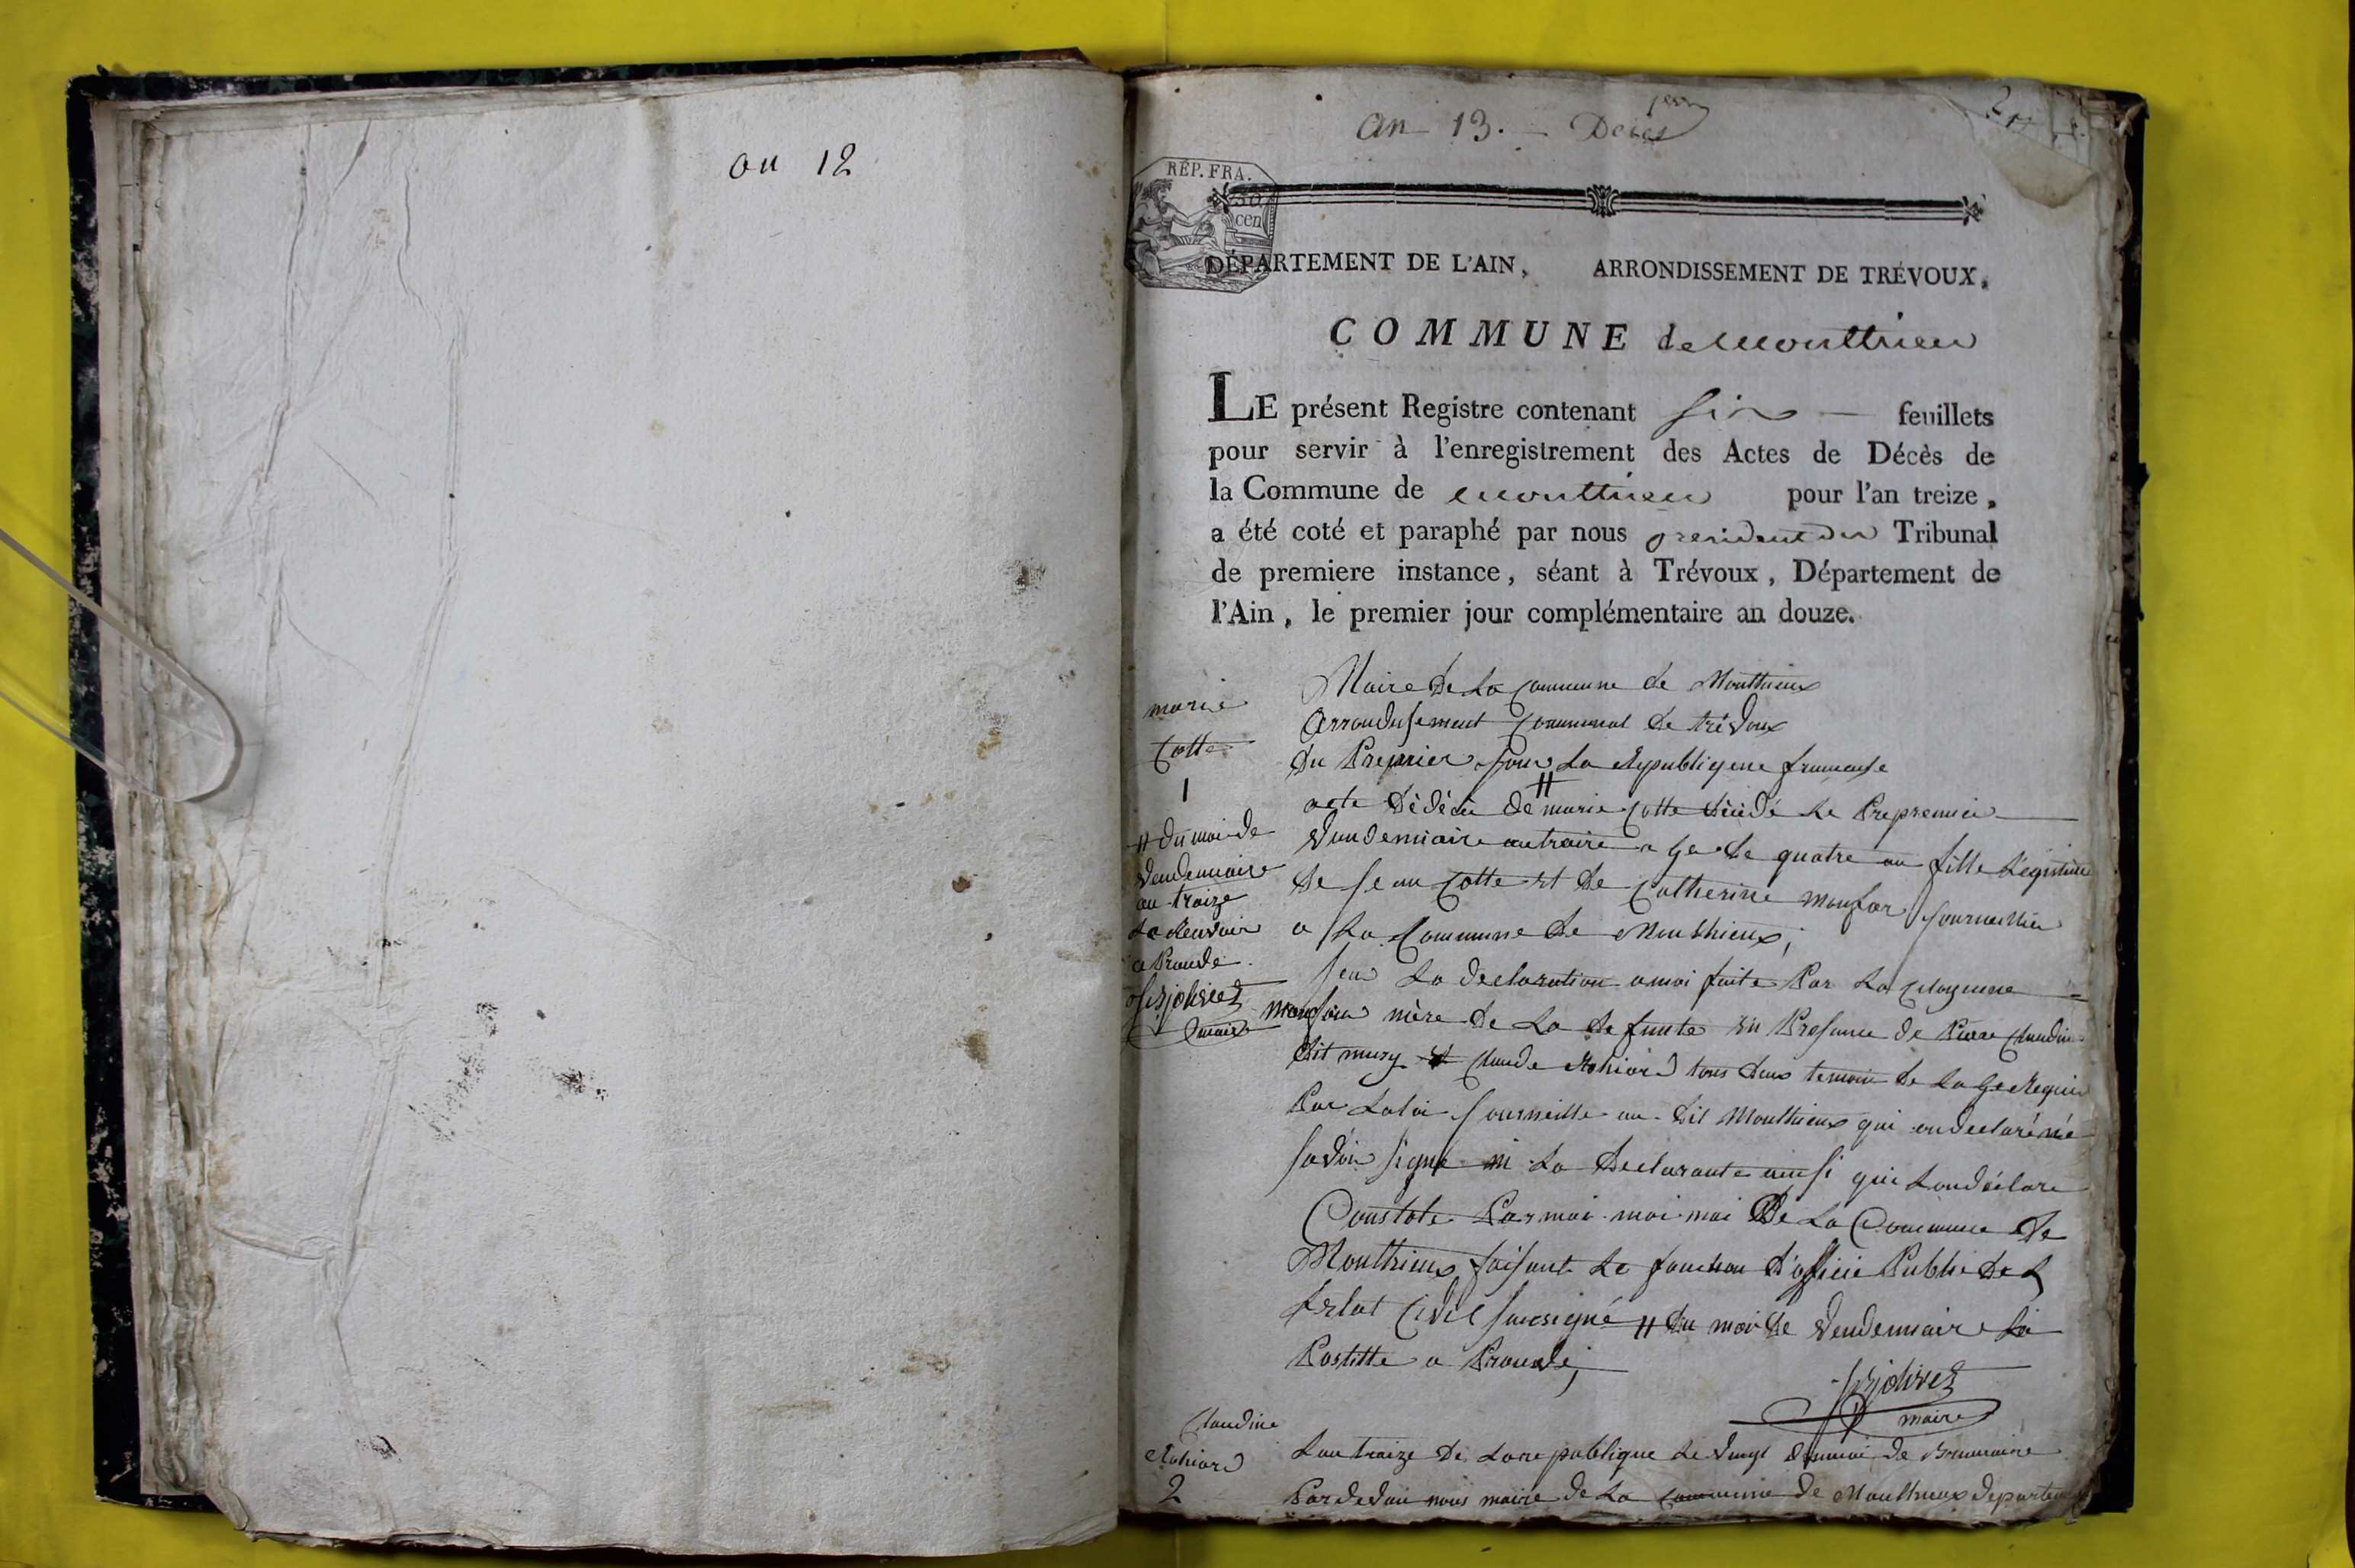 an 12
An 13. Décès
RÉP. FRA.
50
cen
DÉPARTEMENT DE L'AIN, ARRONDISSEMENT DE TRÉVOUX,
COMMUNE de Monthieu
LE présent Registre contenant six feuillets
pour servir à l'enregistrement des Actes de Décès de
la Commune de Monthieu pour l'an treize,
a été coté et paraphé par nous president du Tribunal
de premiere instance, séant à Trévoux, Département de
l'Ain, le premier jour complémentaire an douze.
marie
Cotte
1
Maire de La Commune de Monthieux
Arrondisement Communal de trévoux
du Premier Jour La Republiqeue francaise
acte dédécè de marie Cotte décédé Le Prepremie
vandemiaire antraize age de quatre an fille Legitime
de Jean Cotte et de Catherine Journallier
a La Commune de Monthieux,
Seur La declaration a moi faite Par La citoyenne
mère de La defunte en Presance de Piere Claudin
dit mury et Claude tous deux temoin de Lage Requi
Par Laloi Journeille au dit Monthieux qui on declaré né
savoir signé ni La declarante ainsi qui Londéclare
Constate Par moi moi mai De La Commune de
Monthieux faisant Le fonction d'officie Public de L
Civil sousigné # du moi de vendemiaire La
Postille a Prouvé,
# du moi de
vendemiaire
an traize
Le Renvoir
a Prouvé.
maire
maire
Claudine
2
Lan traize De La republique Le vingt du moi de Brumaire
Pardevan nous maire de La Commune de Monthieux departem